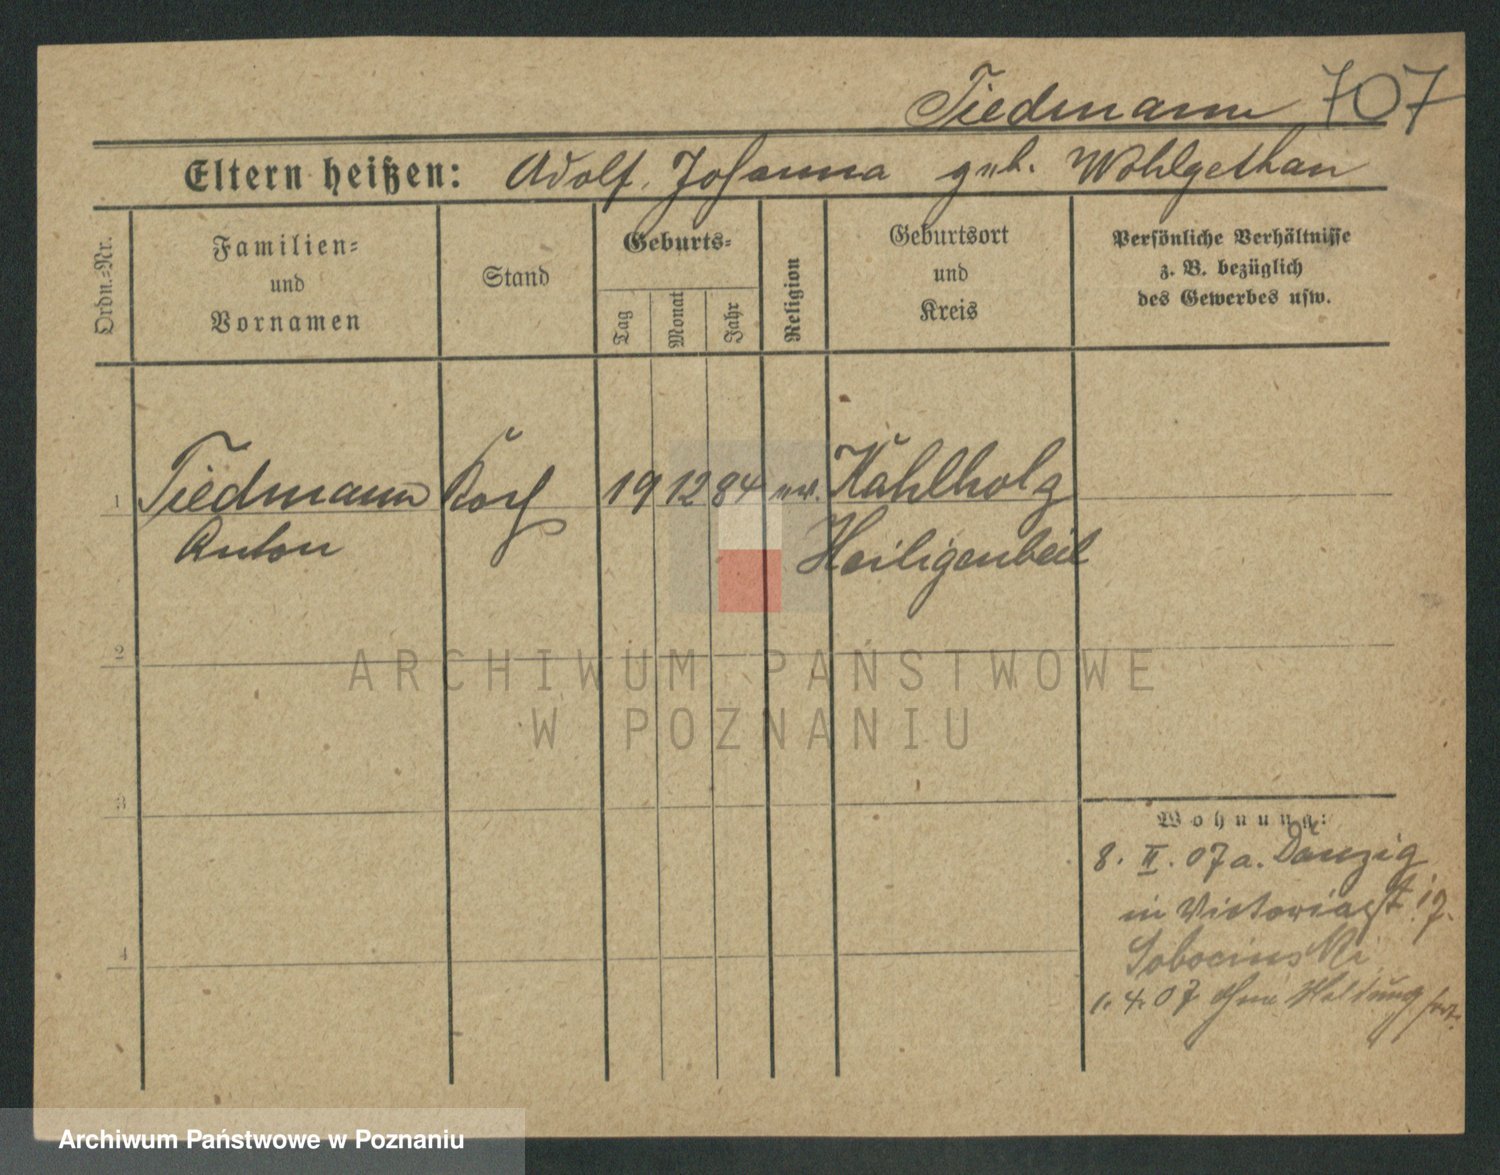 Tiedmann 707
Eltern heißen: Adolf. Johanna geb. Wohlgethan
Ordn.=Nr.
Familien=
und
Vornamen
Stand
Geburts=
Tag
Monat
Jahr
Religion
Geburtsort
und
Kreis
Persönliche Verhältnisse
z. B. bezüglich
des Gewerbes usw.
1 Tiedmann Koch 19 12 84 ev. Kahlholz
Anton Heiligenbeil
2
3
4
Wohnung:
8. II. 07 a. Danzig
in Victoriast. 17.
Sobocinski
1. 4. 07 ohne Meldung fort.
ARCHIWUM PAŃSTWOWE
W POZNANIU
Archiwum Państwowe w Poznaniu